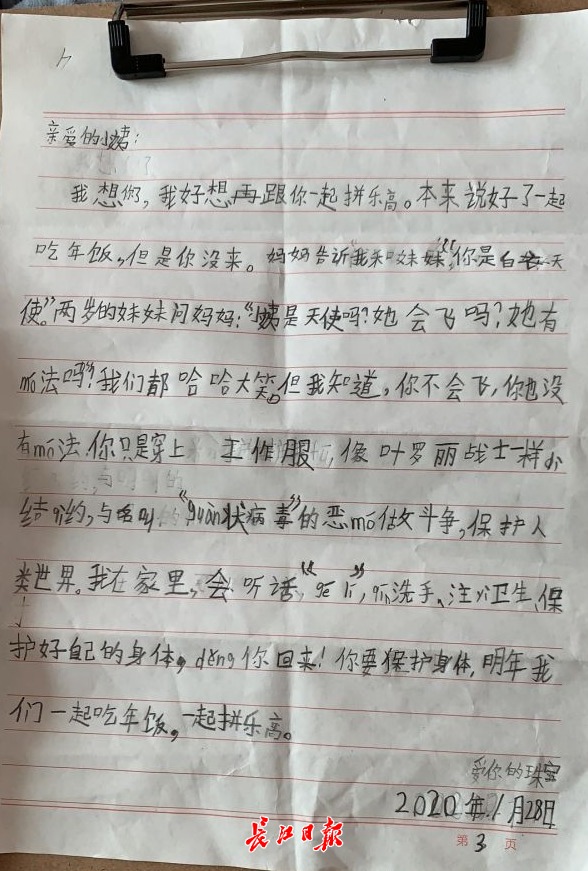 亲爱的小姨：
我想你，我好想再跟你一起拼乐高。本来说好了一起
吃年饭，但是你没来。妈妈告诉我和妹妹，“你是白衣天
使。”两岁的妹妹问妈妈：“小姨是天使吗？她会飞吗？她有
mó法吗？”我们都哈哈大笑。但我知道，你不会飞，你也没
有mó法，你只是穿上工作服，像叶罗丽战士一样
结 约，与名叫“guān状病毒”的恶mó做斗争，保护人
类世界。我在家里，会听话，“gé lí”，qín洗手、注yì卫生，保
护好自己的身体，děng你回来！你要保护身体，明年我
们一起吃年饭，一起拼乐高。
爱你的珠宝
2020年1月28日
长江日报
第3页